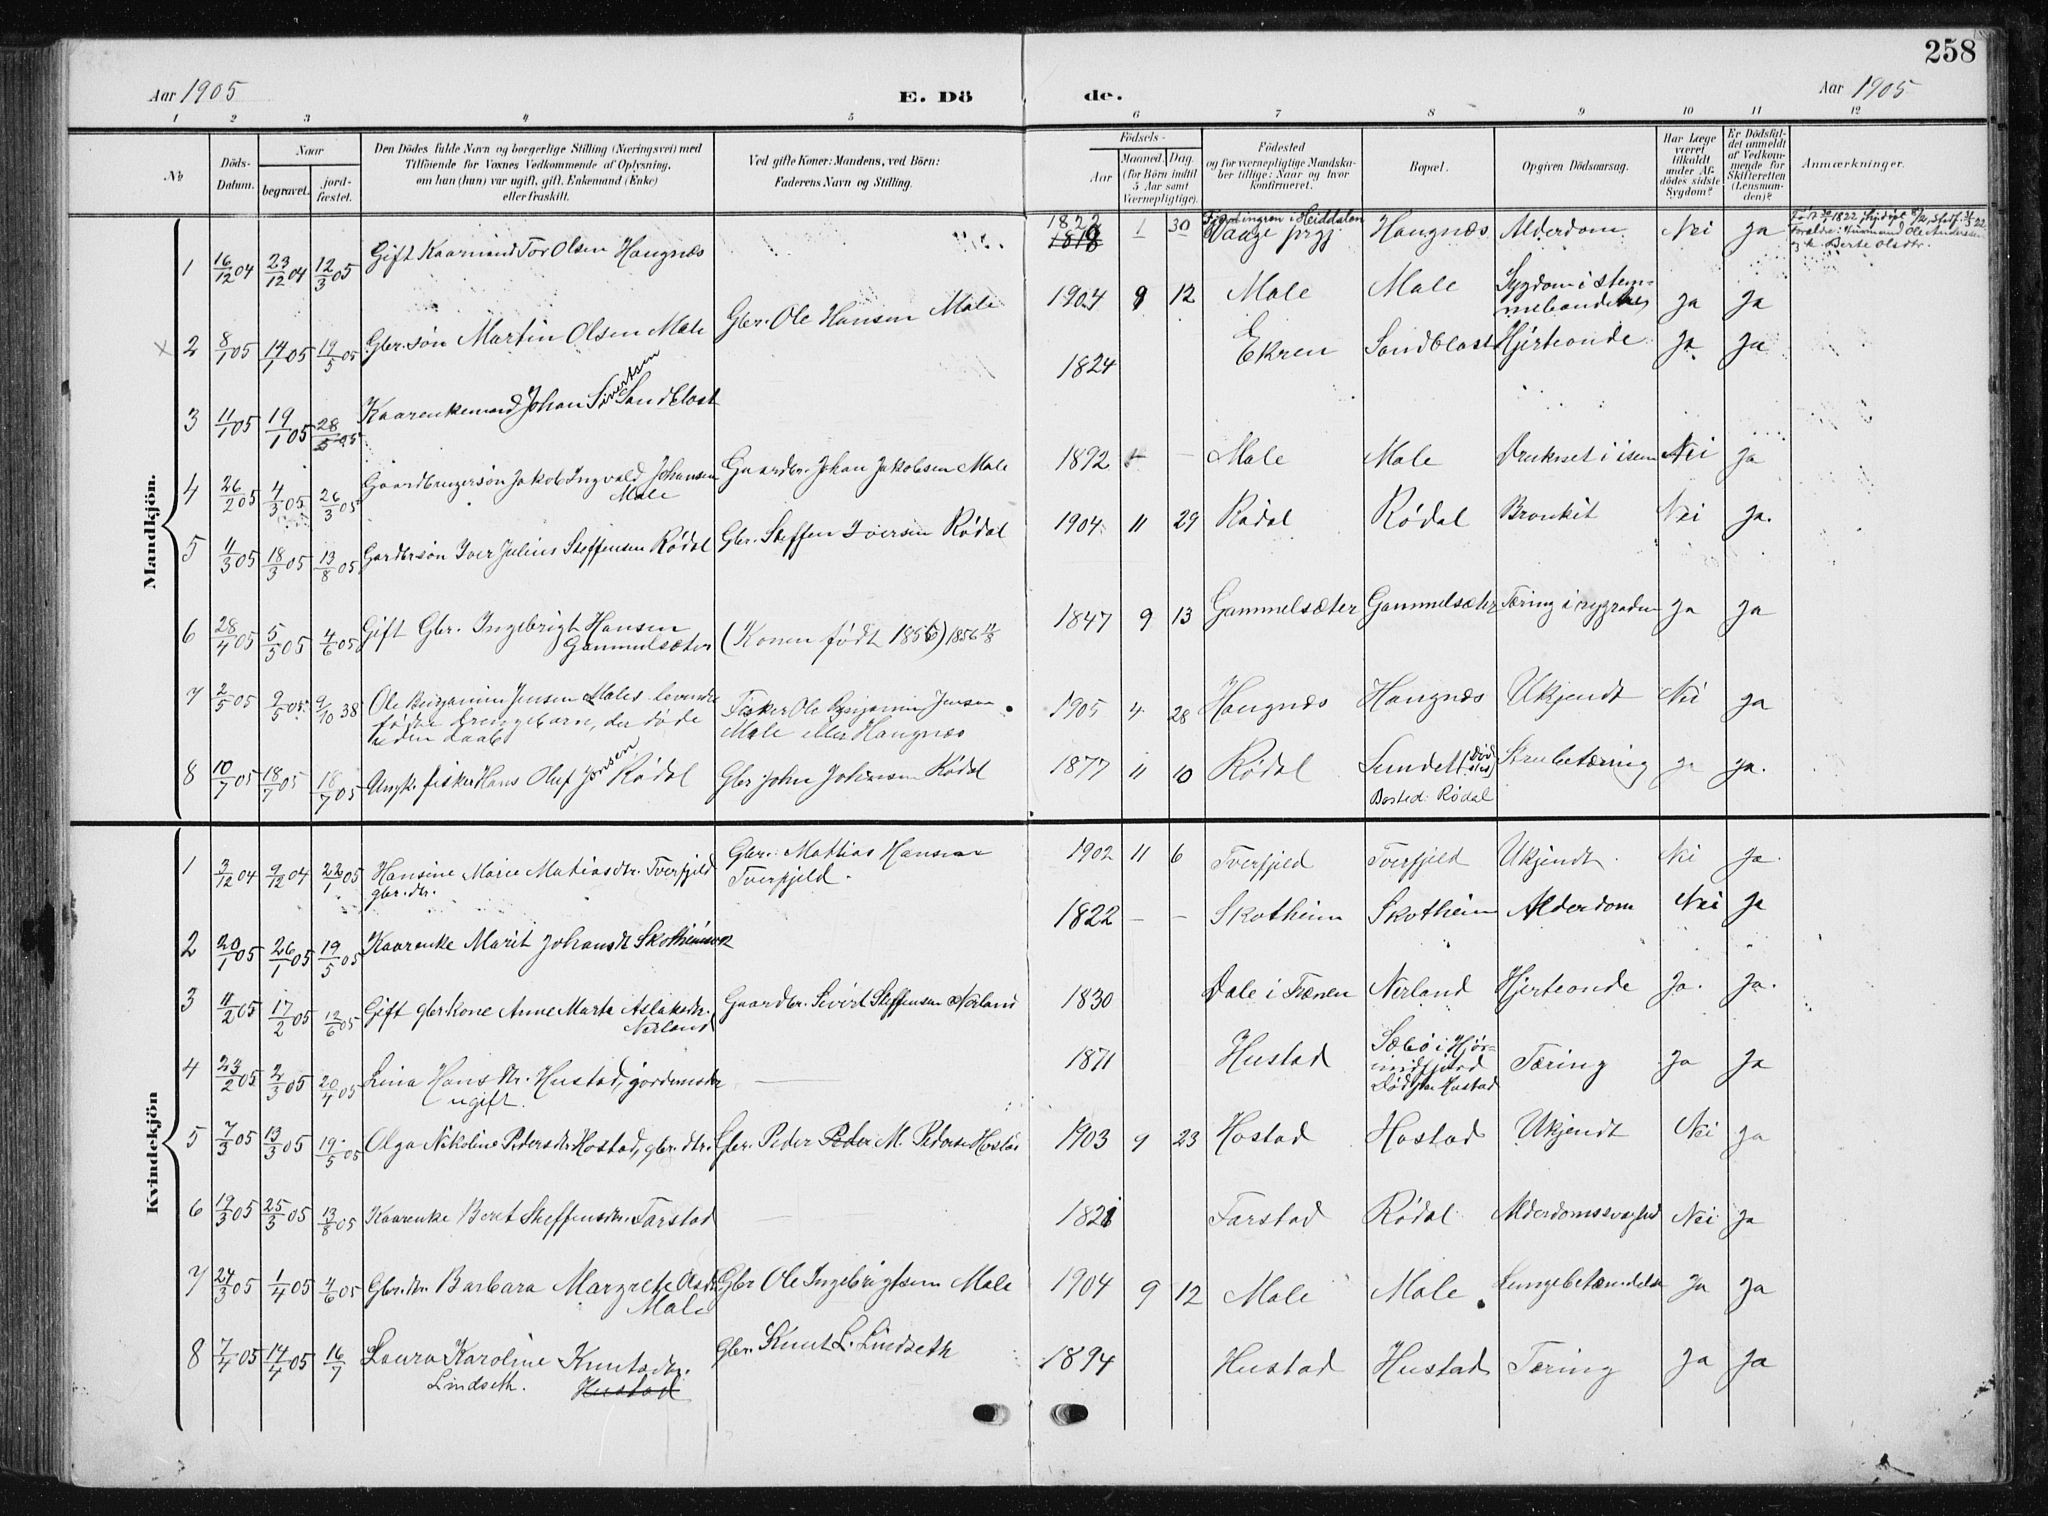 258
Aar 1905
E. Dö
de.
Aar 1905
1 2 3 4 5 6 7 8 9 10 11 12
No
Döds-Datum.
Naar
begravet.
jord-fæstet.
Den Dödes fulde Navn og borgerlige Stilling (Næringsvei) med
Tilföiende for Voxnes Vedkommende af Oplysning,
om han (hun) var ugift, gift, Enkemand (Enke)
eller fraskilt.
Ved gifte Koner: Mandens, ved Börn:
Faderens Navn og Stilling.
Födsels-
Aar
Maaned. Dag.
(for Börn indtil
5 Aar samt
Værnepligtige).
Födested
og for værnepligtige Mandska-
ber tillige: Naar og hvor
konfirmeret.
Bopæl.
Opgiven Dödsaarsag.
Har Læge
været
tilkaldt
under Af-
dödes sidste
Sygdom?
Er Dödsfal-
det anmeldt
af Vedkom-
mende for
Skifteretten
(Lensman-
den)?
Anmærkninger.
Mandkjön.
1 16/12 04 23/12 04 12/3 05 Gift Kaarmand Tor Olsen Haugnæs 1822 1818 1 30 i Heiddalen Vaage prgj. Haugnæs Alderdom Nei Ja
2 8/1 05 14/1 05 19/5 05 Gbr.søn Martin Olsen Male Gbr. Ole Hansen Male 1904 9 12 Male Male Sygdom i stem-
mebaandet Ja Ja
3 11/1 05 19/1 05 28/5 05 Kaarenkemand Johan Sivertsen Sandblast 1824 Ekren Sandblast Hjerteonde Ja Ja
4 26/2 05 4/3 05 26/3 05 Gaardbrugersøn Jakob Ingvald Johansen
Male Gaardbr. Johan Jakobsen Male 1892 — Male Male Druknet i isen Nei Ja
5 4/3 05 18/3 05 13/8 05 Gardbrsøn Iver Julius Steffensen Rødal Gbr. Steffen Iversen Rødal 1904 11 29 Rødal Rødal Bronkit Nei Ja.
6 28/4 05 5/5 05 4/6 05 Gift Gbr. Ingebrigt Hansen
Gammelsæter (Konen født 1856) 1856 1847 9 13 Gammelsæter Gammelsæter Tæring i rygraden Ja Ja
7 2/5 05 9/5 05 9/10 38 Ole Benjamin Jensen Males levende
fødte drengebarn, der døde
uden daab Fisker Ole Benjamin Jensen
Male eller Haugnæs 1905 4 28 Haugnæs Haugnæs Ukjendt Nei Ja
8 10/7 05 18/7 05 18/7 05 Ungk. fisker Hans Oluf Jonsen Rødal Gbr John Johansen Rødal 1877 11 10 Rødal Sundet
Bosted: Rødal Strubetæring Ja Ja.
Kvindekjön
1 3/12 04 9/12 04 22/1 05 Hansine Marie Matiasdtr. Tverfjeld
gbr.dtr. Gbr. Mathias Hansen
Tverfjeld. 1902 11 6 Tverfjeld Tverfjeld Ukjendt. Nei Ja.
2 20/1 05 26/1 05 19/5 05 Kaarenke Marit Johansdt Skotheim 1822 — — Skotheim Skotheim Alderdom Nei Ja
3 11/2 05 17/2 05 12/6 05 Gift gbrkone Anne Marta Aslaksdtr.
Nerland Gaardbr. Sivert Steffensen Nerland 1830 Dale i Frænen Nerland Hjerteonde Ja. Ja.
4 23/2 05 2/3 05 20/4 05 Lina Hansdtr. Hustad, jordmoder
ugift. — 1871 Hustad Sæbø i Hjør-
indfjord
Død paa Hustad Tæring Ja Ja
5 7/3 05 13/3 05 19/5 05 Olga Nikoline Pedersdtr Hostad, gbr.dtr. Gbr. Peder Peder M. Pedersen Hostad 1903 9 23 Hostad Hostad Ukjendt Nei Ja
6 19/3 05 25/3 05 13/8 05 Kaarenke Beret Steffensdtr. Farstad — 1821 Farstad Rødal Alderdomssvaghed Nei Ja
7 24/3 05 1/4 05 4/6 05 Gbr.dtr. Barbara Margrete Olsdtr
Male Gbr Ole Ingebrigtsen Male 1904 9 12 Male Male Lungebetændelse Ja Ja
8 7/4 05 14/4 05 16/7 Laura Karoline Knutsdtr.
Lindseth. Hustad Gbr. Knut L. Lindseth 1894 Hustad Hustad Tæring Ja Ja